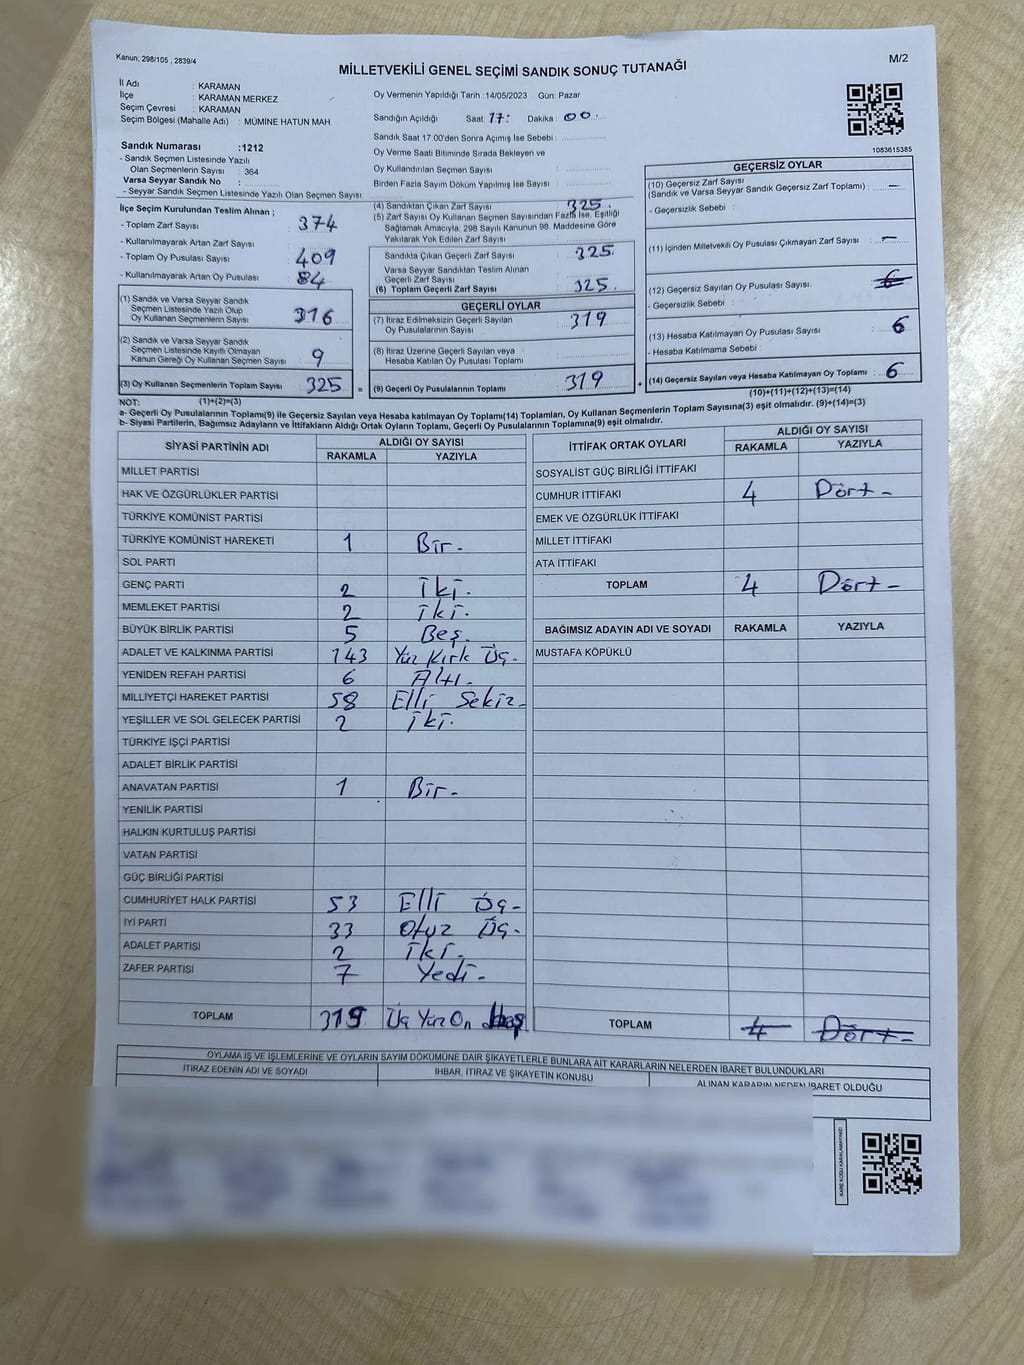 Kanun; 298/105 , 2839/4
M/2
MİLLETVEKİLİ GENEL SEÇİMİ SANDIK SONUÇ TUTANAĞI
İl Adı : KARAMAN
İlçe : KARAMAN MERKEZ
Seçim Çevresi : KARAMAN
Seçim Bölgesi (Mahalle Adı) : MÜMİNE HATUN MAH.
Sandık Numarası :1212
- Sandık Seçmen Listesinde Yazılı
Olan Seçmenlerin Sayısı : 364
Varsa Seyyar Sandık No :
- Seyyar Sandık Seçmen Listesinde Yazılı Olan Seçmen Sayısı
Oy Vermenin Yapıldığı Tarih : 14/05/2023 Gün: Pazar
Sandığın Açıldığı Saat: 17: Dakika : 00.
Sandık Saat 17.00'den Sonra Açımış İse Sebebi :
Oy Verme Saati Bitiminde Sırada Bekleyen ve
Oy Kullandırılan Seçmen Sayısı :
Birden Fazla Sayım Döküm Yapılmış İse Sayısı :
1083615385
İlçe Seçim Kurulundan Teslim Alınan ;
- Toplam Zarf Sayısı : 374
- Kullanılmayarak Artan Zarf Sayısı :
- Toplam Oy Pusulası Sayısı : 409
- Kullanılmayarak Artan Oy Pusulası : 84
(1) Sandık ve Varsa Seyyar Sandık
Seçmen Listesinde Yazılı Olup
Oy Kullanan Seçmenlerin Sayısı : 316
(2) Sandık ve Varsa Seyyar Sandık
Seçmen Listesinde Kayıtlı Olmayan
Kanun Gereği Oy Kullanan Seçmen Sayısı : 9
(3) Oy Kullanan Seçmenlerin Toplam Sayısı : 325 =
(1)+(2)=(3)
(4) Sandıktan Çıkan Zarf Sayısı : 325.
(5) Zarf Sayısı Oy Kullanan Seçmen Sayısından Fazla İse, Eşitliği
Sağlamak Amacıyla, 298 Sayılı Kanunun 98. Maddesine Göre
Yakılarak Yok Edilen Zarf Sayısı :
Sandıkta Çıkan Geçerli Zarf Sayısı : 325.
Varsa Seyyar Sandıktan Teslim Alınan
Geçerli Zarf Sayısı :
(6) Toplam Geçerli Zarf Sayısı : 325.
GEÇERLİ OYLAR
(7) İtiraz Edilmeksizin Geçerli Sayılan
Oy Pusulalarının Sayısı : 319
(8) İtiraz Üzerine Geçerli Sayılan veya
Hesaba Katılan Oy Pusulalarının Sayısı :
(9) Geçerli Oy Pusulalarının Toplamı : 319 +
GEÇERSİZ OYLAR
(10) Geçersiz Zarf Sayısı
(Sandık ve Varsa Seyyar Sandık Geçersiz Zarf Toplamı) : -
- Geçersizlik Sebebi :
(11) İçinden Milletvekili Oy Pusulası Çıkmayan Zarf Sayısı : -
(12) Geçersiz Sayılan Oy Pusulası Sayısı. : 6
- Geçersizlik Sebebi :
(13) Hesaba Katılmayan Oy Pusulası Sayısı : 6
- Hesaba Katılmama Sebebi :
(14) Geçersiz Sayılan veya Hesaba Katılmayan Oy Toplamı : 6
(10)+(11)+(12)+(13)=(14)
NOT:
a- Geçerli Oy Pusulalarının Toplamı(9) ile Geçersiz Sayılan veya Hesaba katılmayan Oy Toplamı(14) Toplamları, Oy Kullanan Seçmenlerin Toplam Sayısına(3) eşit olmalıdır. (9)+(14)=(3)
b- Siyasi Partilerin, Bağımsız Adayların ve İttifakların Aldığı Ortak Oyların Toplamı, Geçerli Oy Pusulalarının Toplamına(9) eşit olmalıdır.
SİYASİ PARTİNİN ADI ALDIĞI OY SAYISI
RAKAMLA YAZIYLA
MİLLET PARTİSİ
HAK VE ÖZGÜRLÜKLER PARTİSİ
TÜRKİYE KOMÜNİST PARTİSİ
TÜRKİYE KOMÜNİST HAREKETİ 1 Bir -
SOL PARTİ
GENÇ PARTİ 2 İki.
MEMLEKET PARTİSİ 2 iki.
BÜYÜK BİRLİK PARTİSİ 5 Beş.
ADALET VE KALKINMA PARTİSİ 143 Yüz Kırk Üç -
YENİDEN REFAH PARTİSİ 6 Altı.
MİLLİYETÇİ HAREKET PARTİSİ 58 Elli Sekiz -
YEŞİLLER VE SOL GELECEK PARTİSİ 2 iki.
TÜRKİYE İŞÇİ PARTİSİ
ADALET BİRLİK PARTİSİ
ANAVATAN PARTİSİ 1 Bir -
YENİLİK PARTİSİ
HALKIN KURTULUŞ PARTİSİ
VATAN PARTİSİ
GÜÇ BİRLİĞİ PARTİSİ
CUMHURİYET HALK PARTİSİ 53 Elli Üç -
İYİ PARTİ 33 Otuz Üç -
ADALET PARTİSİ 2 iki -
ZAFER PARTİSİ 7 Yedi -
TOPLAM Üç Yüz On
İTTİFAK ORTAK OYLARI ALDIĞI OY SAYISI
RAKAMLA YAZIYLA
SOSYALİST GÜÇ BİRLİĞİ İTTİFAKI
CUMHUR İTTİFAKI 4 Dört -
EMEK VE ÖZGÜRLÜK İTTİFAKI
MİLLET İTTİFAKI
ATA İTTİFAKI
TOPLAM 4 Dört -
BAĞIMSIZ ADAYIN ADI VE SOYADI RAKAMLA YAZIYLA
MUSTAFA KÖPÜKLÜ
TOPLAM 4 Dört -
OYLAMA İŞ VE İŞLEMLERİNE VE OYLARIN SAYIM DÖKÜMÜNE DAİR ŞİKAYETLERLE BUNLARA AİT KARARLARIN NELERDEN İBARET BULUNDUKLARI
İTİRAZ EDENİN ADI VE SOYADI İHBAR, İTİRAZ VE ŞİKAYETİN KONUSU ALINAN KARARIN NEDEN İBARET OLDUĞU
KARE KODU KARALAMAYINIZ!